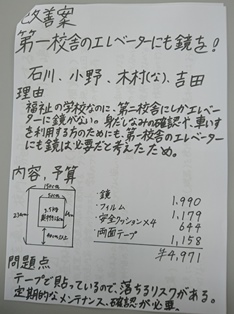 改善案
第一校舎のエレベーターにも鏡を!
石川、小野、木村(な)、吉田
理由
福祉の学校なのに、第二校舎にしかエレベー
ターに鏡がない。身だしなみの確認や、車いす
を利用する方のためにも、第一校舎のエレベーター
にも鏡は必要だと考えたため。
内容、予算
・鏡 1,990
・フィルム 1,179
・安全クッション×4 644
・両面テープ 1,158
計4,971
問題点
テープで貼っているので、落ちるリスクがある。
定期的なメンテナンス、確認が必要。